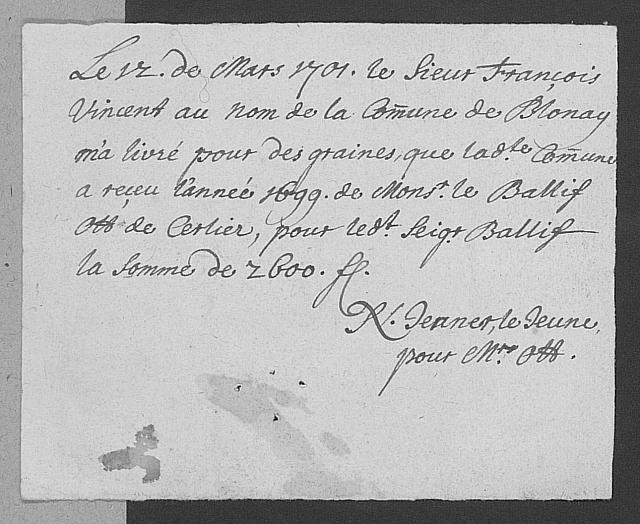 Le 12. de Mars 1701. le Sieur François
Vincent au nom de la Com̃une de Blonay
m'a livré pour des graines, que lad.te Com̃une
a receu l'année 1699. de Mons.r le Ballif
Ott de Cerlier, pour led.t Seig.r Ballif
la Somme de 2600. ff.
Jenner, le Jeune,
pour Mr. Ott.